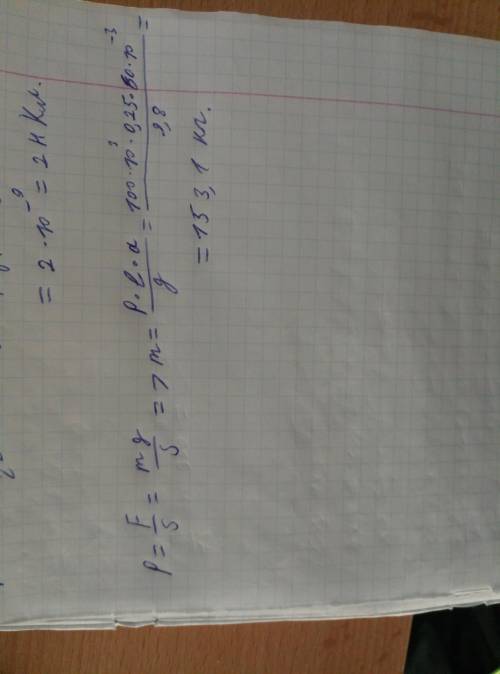 = 2 · 10⁻⁹ = 2 н Кл.
P = F/S = mg/S => m = P·l·a/g = 100·10³·0,25·60·10⁻³/9,8 =
= 153,1 кг.